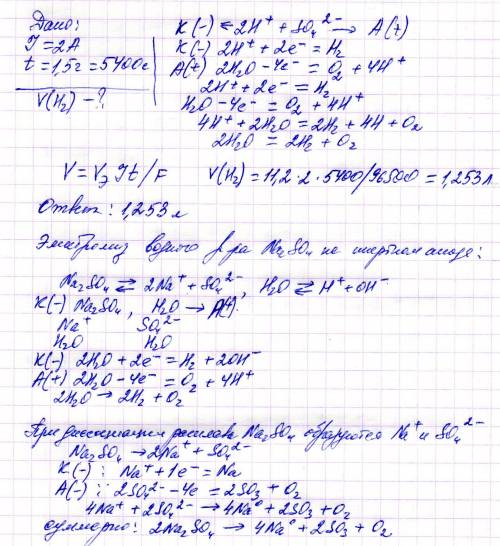 Дано:
I = 2А
t = 1,5г = 5400с
V(H₂) – ?
К(-) ← 2H⁺ + SO₄²⁻ → А(+)
К(-) 2H⁺ + 2e⁻ = H₂
А(+) 2H₂O – 4e⁻ = O₂ + 4H⁺
2H⁺ + 2e⁻ = H₂
H₂O – 4e⁻ = O₂ + 4H⁺
4H⁺ + 2H₂O = 2H₂ + 4H + O₂
2H₂O = 2H₂ + O₂
V = Vэ It / F V(H₂) = 11,2 · 2 · 5400/96500 = 1,253 л
Ответ: 1,253 л
Электролиз водного р-ра Na₂SO₄ на инертном аноде:
Na₂SO₄ ⇄ 2Na⁺ + SO₄²⁻, H₂O ⇄ H⁺ + OH⁻
К(-) Na₂SO₄, H₂O → А(+)
Na⁺ SO₄²⁻
H₂O H₂O
К(-) 2H₂O + 2e⁻ = H₂ + 2OH⁻
А(+) 2H₂O – 4e⁻ = O₂ + 4H⁺
2H₂O → 2H₂ + O₂
При диссоциации расплава Na₂SO₄ образуются Na⁺ и SO₄²⁻
Na₂SO₄ → 2Na⁺ + SO₄²⁻
К(-): Na⁺ + 1e⁻ = Na
А(-): 2SO₄²⁻ – 4e = 2SO₃ + O₂
4Na⁺ + 2SO₄²⁻ → 4Na⁰ + 2SO₃ + O₂
суммарно: 2Na₂SO₄ → 4Na⁰ + 2SO₃ + O₂